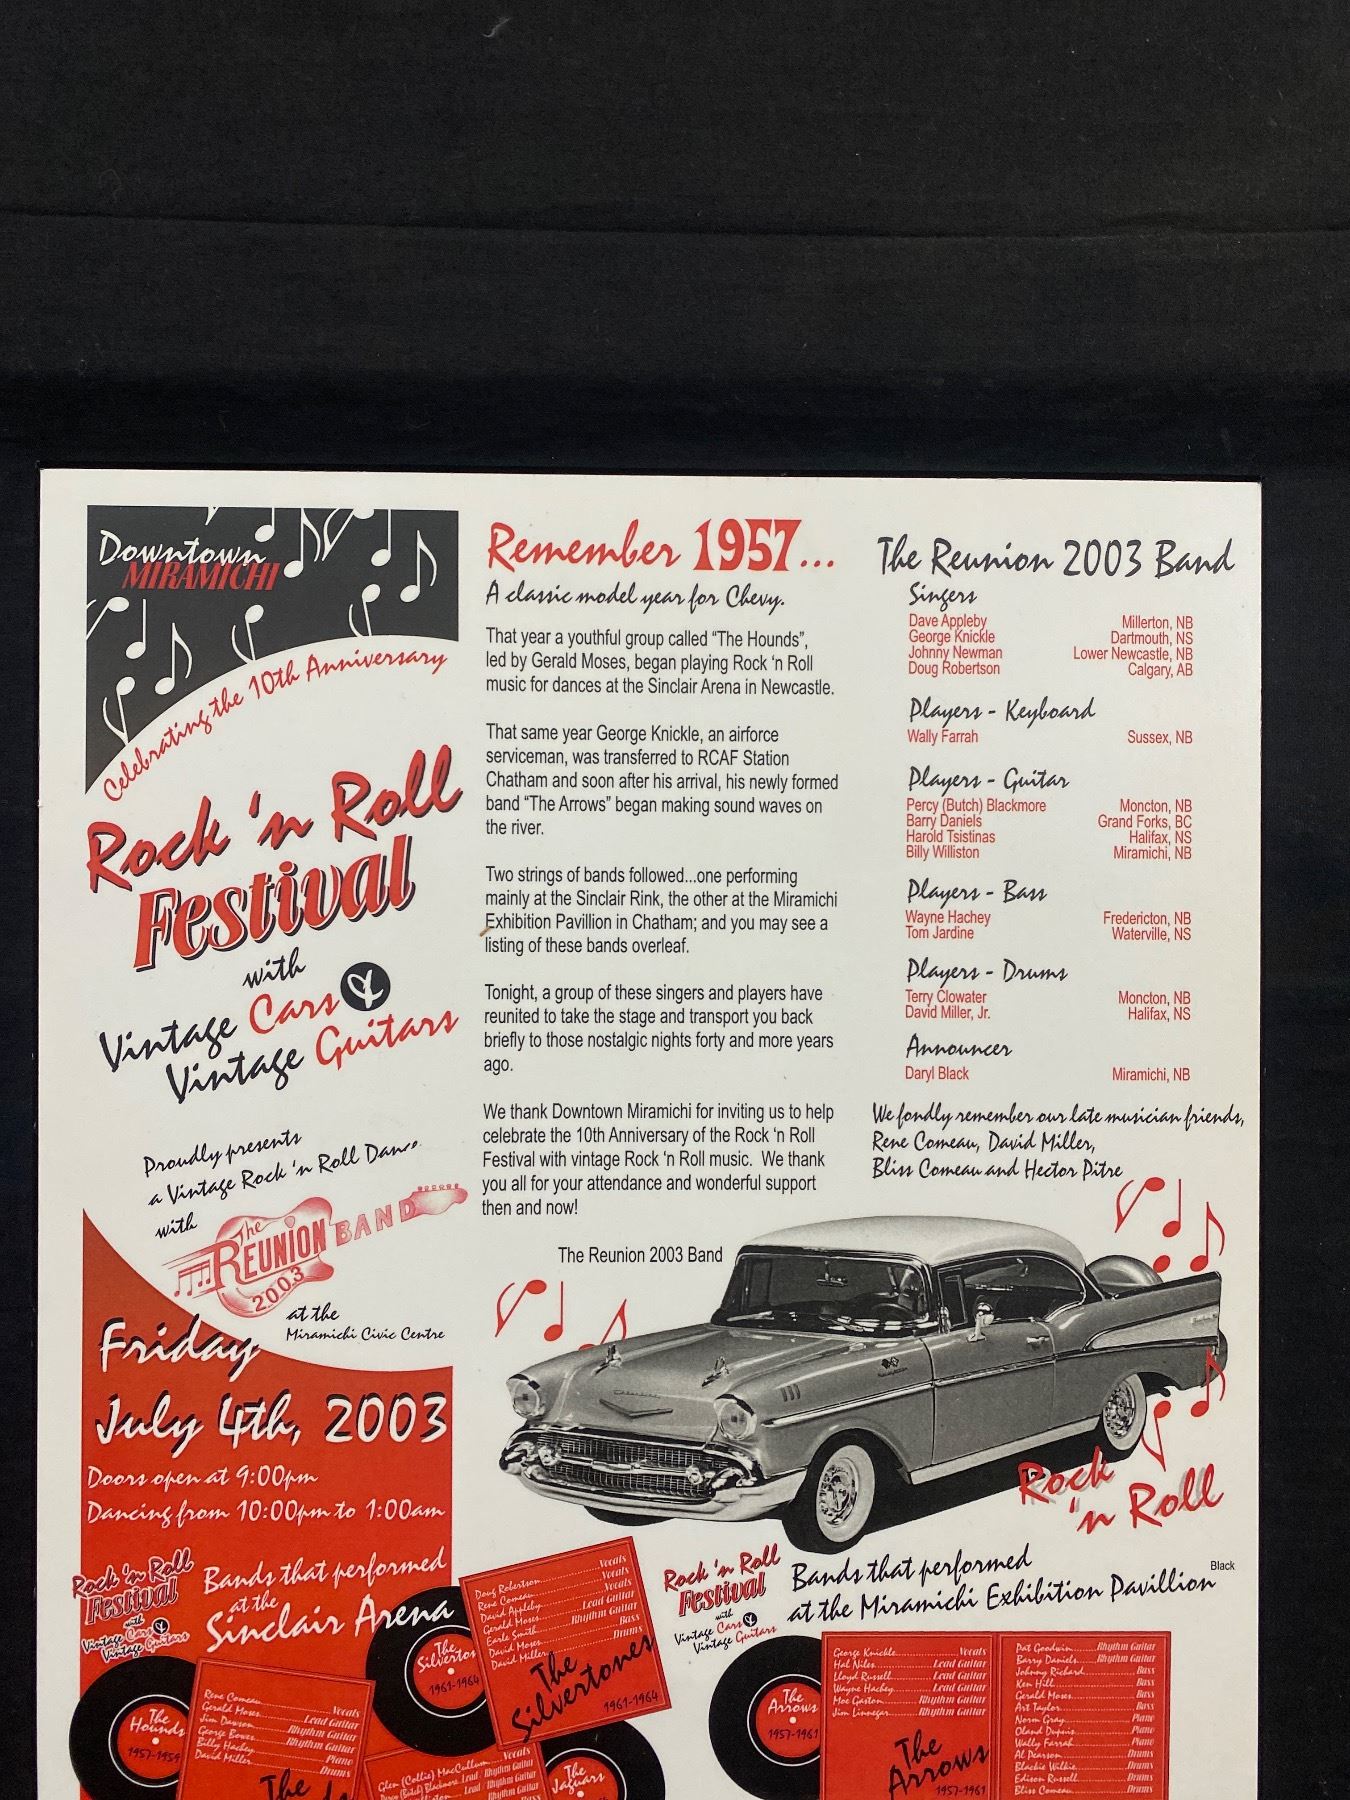 Downtown
MIRAMICHI
Celebrating the 10th Anniversary
Rock 'n Roll
Festival
with
Vintage Cars &
Vintage Guitars
Proudly presents
a Vintage Rock 'n Roll Dance
with
The
REUNION BAND
2003
at the
Miramichi Civic Centre
Friday
July 4th, 2003
Doors open at 9:00pm
Dancing from 10:00pm to 1:00am
Remember 1957...
A classic model year for Chevy.
That year a youthful group called “The Hounds”,
led by Gerald Moses, began playing Rock ‘n Roll
music for dances at the Sinclair Arena in Newcastle.
That same year George Knickle, an airforce
serviceman, was transferred to RCAF Station
Chatham and soon after his arrival, his newly formed
band “The Arrows” began making sound waves on
the river.
Two strings of bands followed...one performing
mainly at the Sinclair Rink, the other at the Miramichi
Exhibition Pavillion in Chatham; and you may see a
listing of these bands overleaf.
Tonight, a group of these singers and players have
reunited to take the stage and transport you back
briefly to those nostalgic nights forty and more years
ago.
We thank Downtown Miramichi for inviting us to help
celebrate the 10th Anniversary of the Rock ‘n Roll
Festival with vintage Rock ‘n Roll music. We thank
you all for your attendance and wonderful support
then and now!
The Reunion 2003 Band
The Reunion 2003 Band
Singers
Dave Appleby Millerton, NB
George Knickle Dartmouth, NS
Johnny Newman Lower Newcastle, NB
Doug Robertson Calgary, AB
Players - Keyboard
Wally Farrah Sussex, NB
Players - Guitar
Percy (Butch) Blackmore Moncton, NB
Barry Daniels Grand Forks, BC
Harold Tsistinas Halifax, NS
Billy Williston Miramichi, NB
Players - Bass
Wayne Hachey Fredericton, NB
Tom Jardine Waterville, NS
Players - Drums
Terry Clowater Moncton, NB
David Miller, Jr. Halifax, NS
Announcer
Daryl Black Miramichi, NB
We fondly remember our late musician friends,
Rene Comeau, David Miller,
Bliss Comeau and Hector Pitre
Rock
'n Roll
Rock 'n Roll
Festival
with
Vintage Cars &
Vintage Guitars
Bands that performed
at the
Sinclair Arena
The
Hounds
1957-1959
Rene Comeau......Vocals
Gerald Moses......Lead Guitar
Jim Dawson......Rhythm Guitar
George Bower......Rhythm Guitar
Billy Hachey......Piano
David Miller......Drums
The
The
Silverton
1961-1964
Doug Robertson......Vocals
Rene Comeau......Vocals
David Appleby......Vocals
Gerald Moses......Lead Guitar
Earle Smith......Rhythm Guitar
David Moses......Bass
David Miller......Drums
The
Silvertones
1961-1964
Glen (Collie) MacCullum......Vocals
Percy (Butch) Blackmore Lead / Rhythm Guitar
Lead / Rhythm Guitar
Bass
The
Jaguars
Rock 'n Roll
Festival
with
Vintage Cars &
Vintage Guitars
Bands that performed
at the Miramichi Exhibition Pavillion
Black
The
Arrows
1957-1961
George Knickle......Vocals
Hal Niles......Lead Guitar
Lloyd Russell......Lead Guitar
Wayne Hachey......Lead Guitar
Moe Gaston......Rhythm Guitar
Jim Linnegar......Rhythm Guitar
The
Arrows
1957-1961
Pat Goodwin......Rhythm Guitar
Barry Daniels......Rhythm Guitar
Johnny Richard......Bass
Ken Hill......Bass
Gerald Moses......Bass
Art Taylor......Bass
Norm Gray......Piano
Oland Dupuis......Piano
Wally Farrah......Piano
Al Pearson......Drums
Blackie Wilkie......Drums
Edison Russell......Drums
Bliss Comeau......Drums